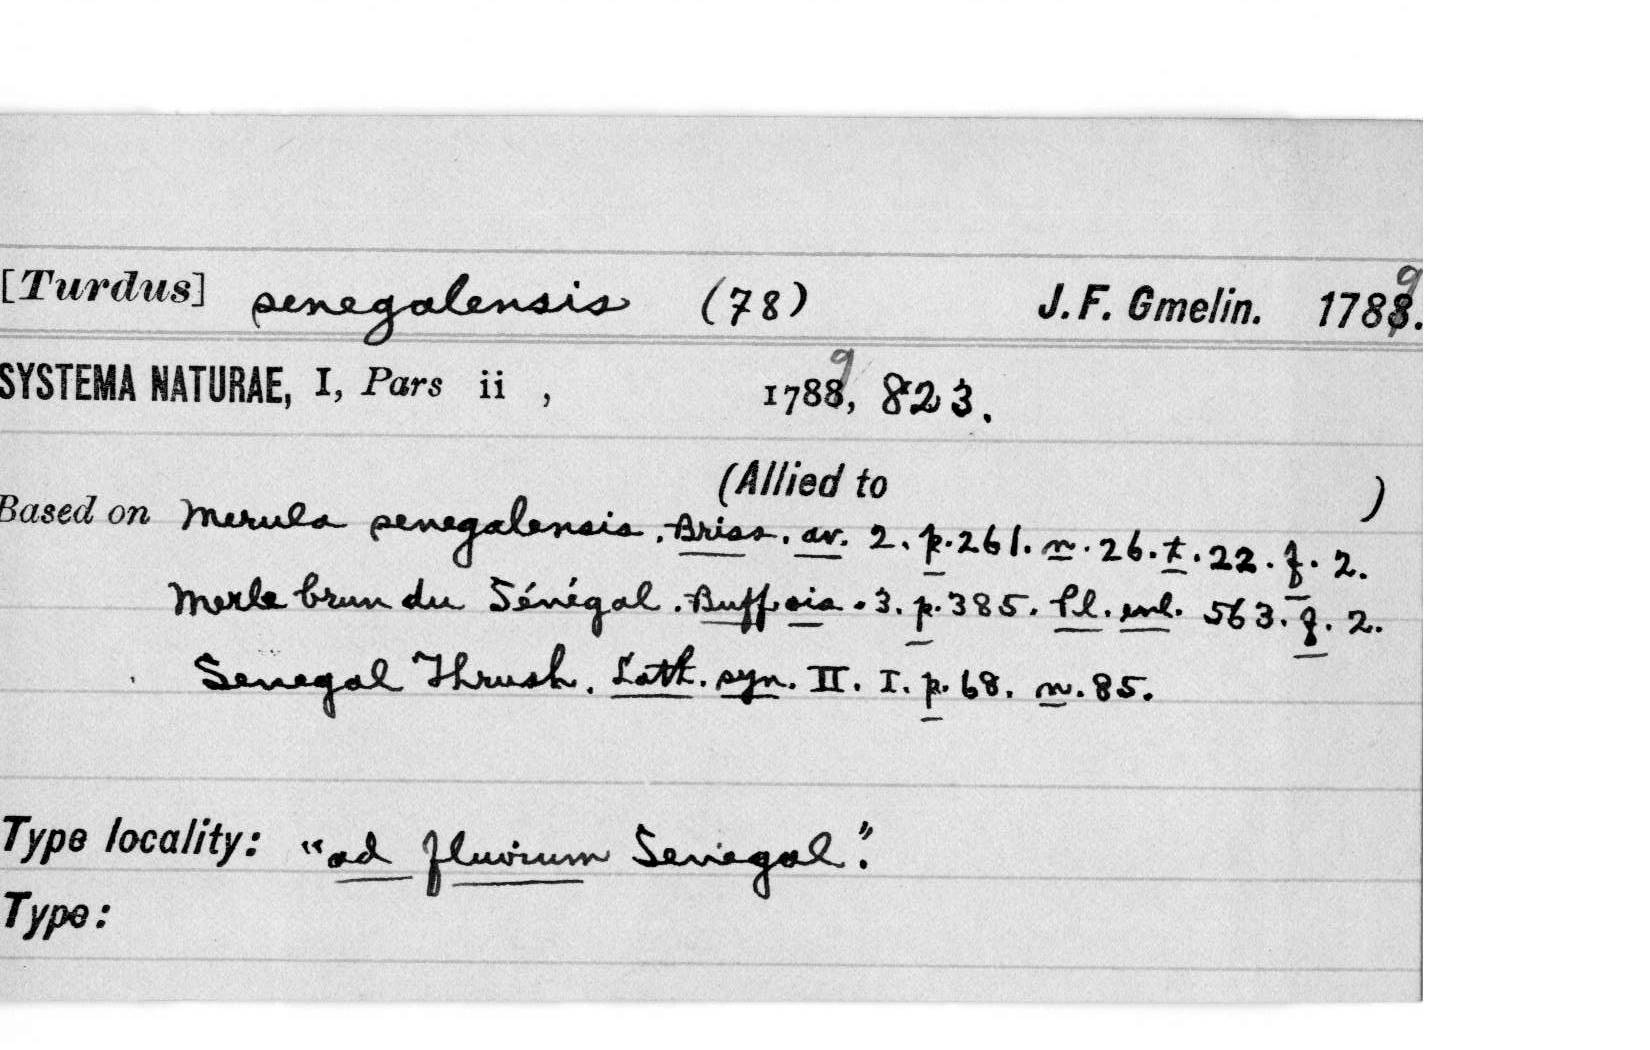 [Turdus] senegalensis (78) J. F. Gmelin. 1789.
SYSTEMA NATURAE, I, Pars ii , 1789, 823.
(Allied to )
Based on Merula senegalensis. Briss. av. 2. p. 261. n. 26. t. 22. f. 2.
Merle brun du Sénégal. Buff. ois. 3. p. 385. Pl. enl. 563. f. 2.
Senegal Thrush. Lath. syn. II. I. p. 68. n. 85.
Type locality: "ad fluvium Senegal."
Type: